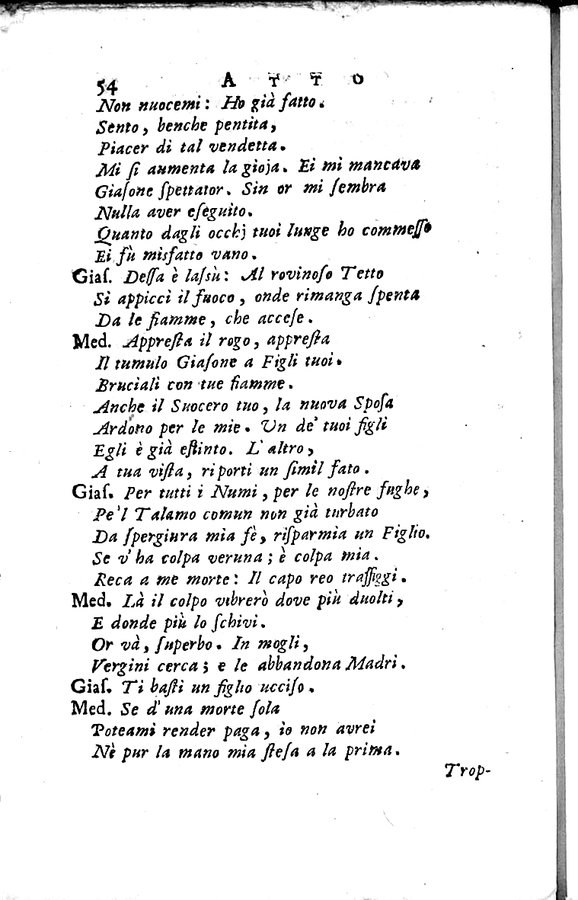 54 ATTO
Non nuocemi: Ho già fatto.
Sento, benche pentita,
Piacer di tal vendetta.
Mi ſi aumenta la gioja. Ei mi mancava
Giaſone ſpettator. Sin or mi ſembra
Nulla aver eſeguito.
Quanto dagli occhj tuoi lunge ho commeſſo
Ei fù misfatto vano.
Giaſ. Deſſa è laſsù: Al rovinoſo Tetto
Si appicci il fuoco, onde rimanga ſpenta
Da le fiamme, che acceſe.
Med. Appreſta il rogo, appreſta
Il tumulo Giaſone a Figli tuoi.
Bruciali con tue fiamme.
Anche il Suocero tuo, la nuova Spoſa
Ardono per le mie. Un de' tuoi figli
Egli è già eſtinto. L'altro,
A tua viſta, riporti un ſimil fato.
Giaſ. Per tutti i Numi, per le noſtre fughe,
Pe'l Talamo comun non già turbato
Da ſpergiura mia fè, riſparmia un Figlio.
Se v'ha colpa veruna; è colpa mia.
Reca a me morte: Il capo reo traffiggi.
Med. Là il colpo vibrerò dove più duolti,
E donde più lo ſchivi.
Or và, ſuperbo. In mogli,
Vergini cerca; e le abbandona Madri.
Giaſ. Ti baſti un figlio ucciſo.
Med. Se d'una morte ſola
Poteami render paga, io non avrei
Nè pur la mano mia ſteſa a la prima.
Trop-